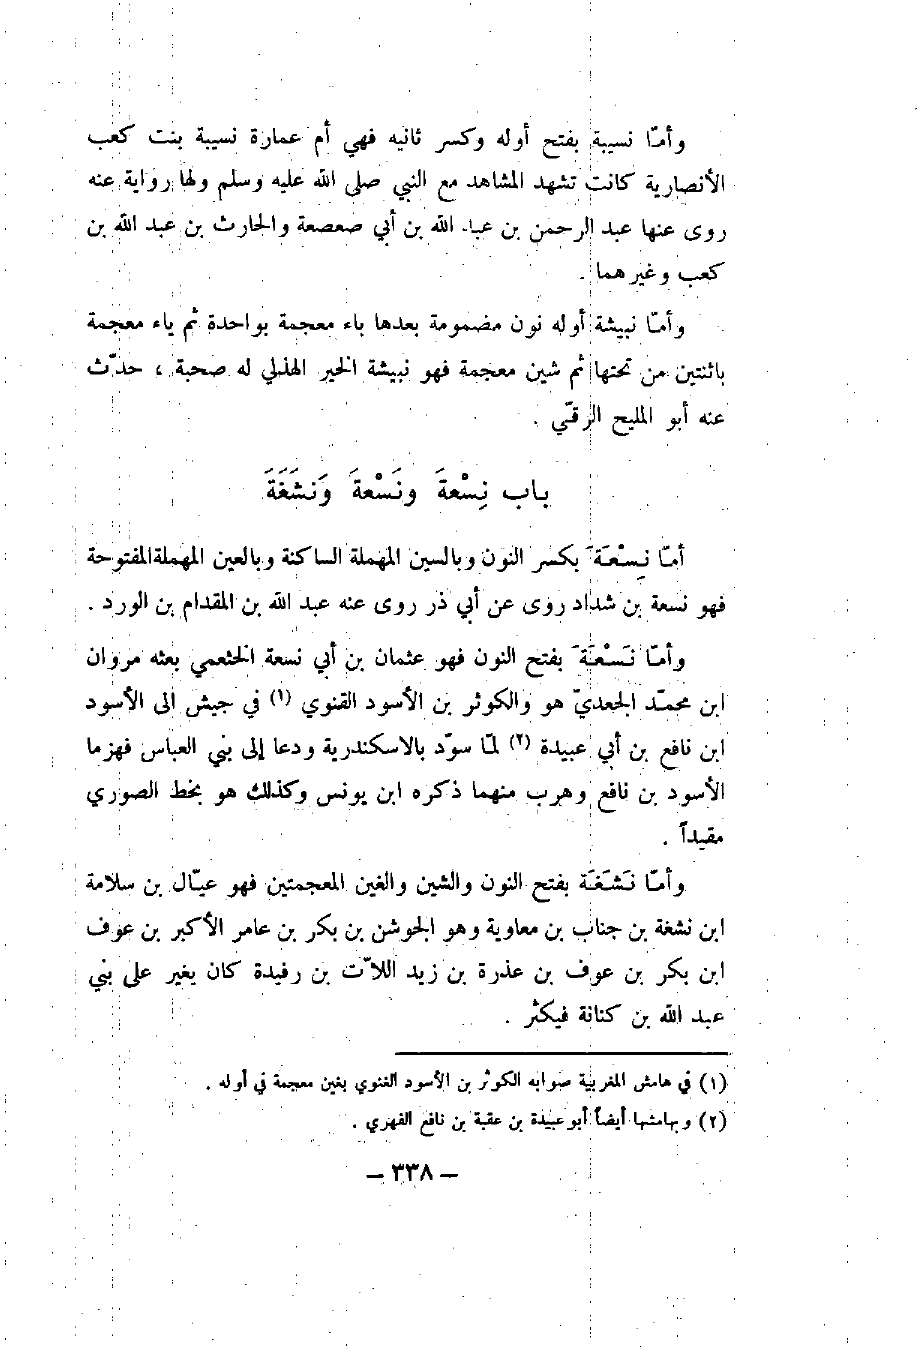 وأمّا نسيبة بفتح أوله وكسر ثانيه فهي أم عمارة نسيبة بنت كعب
الأنصارية كانت تشهد المشاهد مع النبي صلى الله عليه وسلم ولها رواية عنه
روى عنها عبد الرحمن بن عبد الله بن أبي صعصعة والحارث بن عبد الله بن
كعب وغيرهما .
وأمّا نبيشة أوله نون مضمومة بعدها باء معجمة بواحدة ثم ياء معجمة
باثنتين من تحتها ثم شين معجمة فهو نبيشة الخير الهذلي له صحبة ، حدّث
عنه أبو المليح الرقّي .
باب نِسْعةَ ونَسْعةَ وَنَشَغَةَ
أمّا نِسْعَةَ بكسر النون وبالسين المهملة الساكنة وبالعين المهملة المفتوحة
فهو نسعة بن شداد روى عن أبي ذر روى عنه عبد الله بن المقدام بن الورد .
وأمّا نَسْعَةَ بفتح النون فهو عثمان بن أبي نسعة الخثعمي بعثه مروان
ابن محمّد الجعديّ هو والكوثر بن الأسود القنوي (١) في جيش الى الأسود
ابن نافع بن أبي عبيدة (٢) لمّا سوّد بالاسكندرية ودعا إلى بني العباس فهزما
الأسود بن نافع وهرب منهما ذكره ابن يونس وكذلك هو بخط الصوري
مقيداً .
وأمّا نَشَغَة بفتح النون والشين والغين المعجمتين فهو عيّال بن سلامة
ابن نشغة بن جناب بن معاوية وهو الجوشن بن بكر بن عامر الأكبر بن عوف
ابن بكر بن عوف بن عذرة بن زيد اللاّت بن رفيدة كان يغير على بني
عبد الله بن كنانة فيكثر .
(١) في هامش المغربية صوابه الكوثر بن الأسود الغنوي بغين معجمة في أوله .
(٢) وبهامشها أيضاً أبو عبيدة بن عقبة بن نافع الفهري .
– ٣٣٨ –